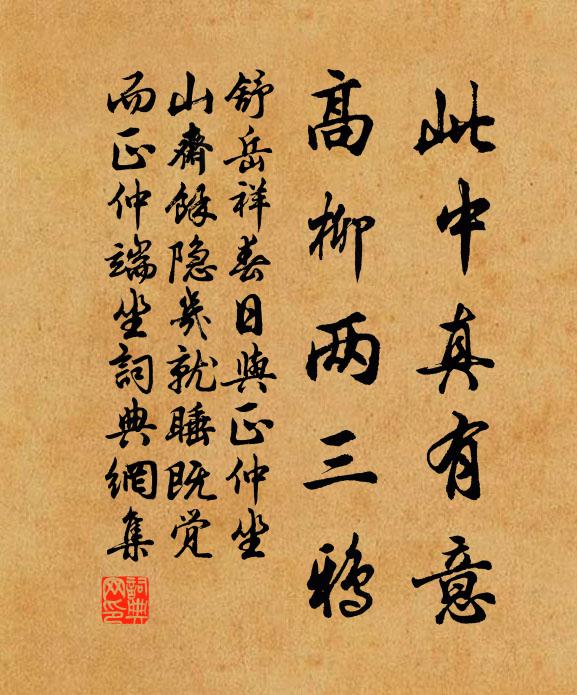 此中真有意
高柳两三鸦
舒岳祥春日與正仲坐
山齋餘隐几就睡既觉
而正仲端坐詞典網集
詞典网印